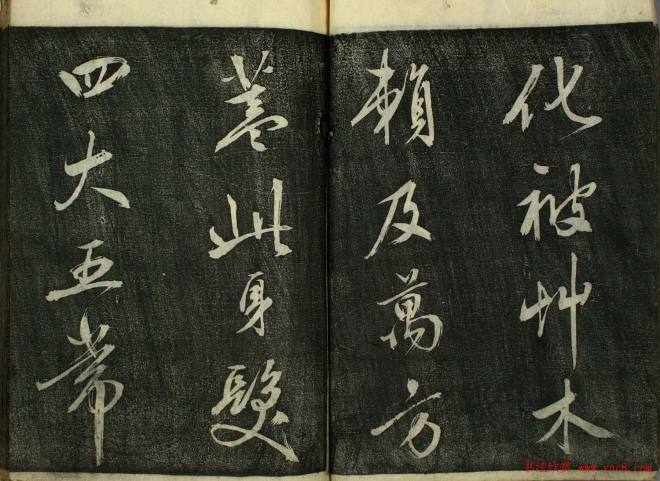 化被艸木
賴及萬方
葢此身髮
四大五常
书法欣赏 www.yac8.com